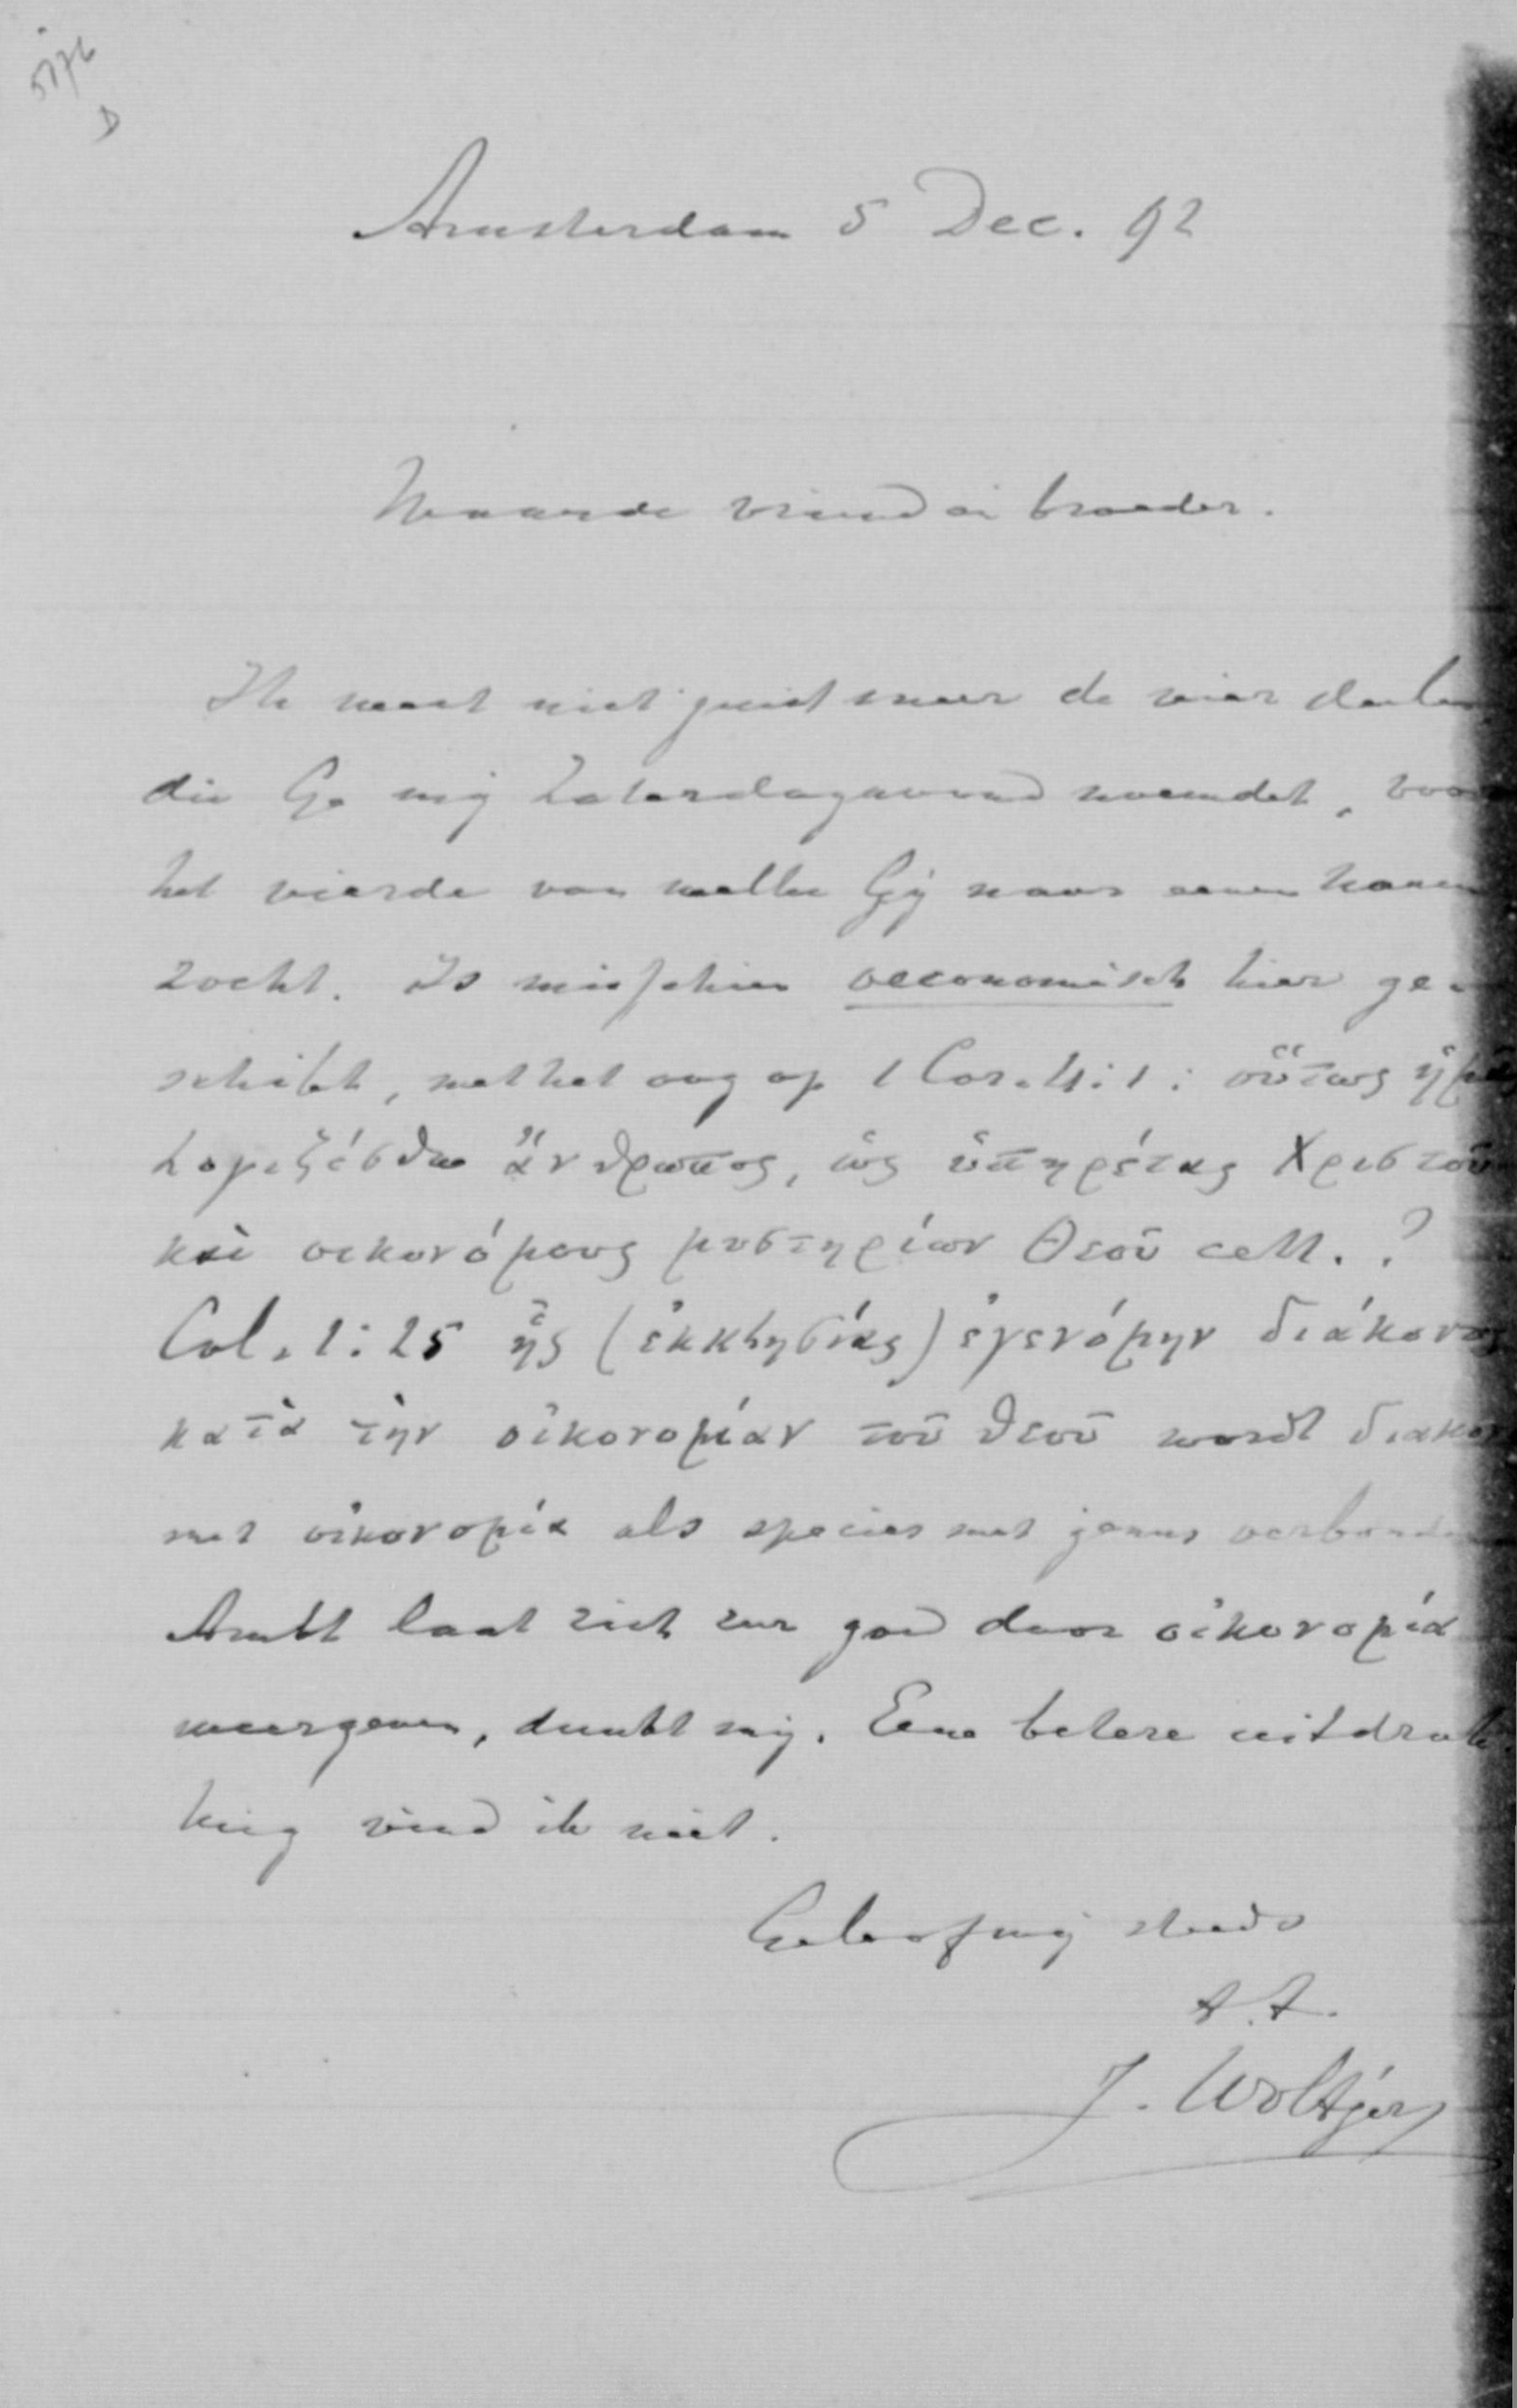 5176
D
Amsterdam 5 Dec. 92
Waarde vriend en broeder.
Ik weet niet juist meer de vier deelen
die Ge mij Zaterdagavond noemdet, voor
het vierde van welke Gij naar eenen naam
zocht. Is misschien oeconomisch hier ge-
schikt, met het oog op 1 Cor. 4:1: οὕτως ἡμᾶς
λογιζέσθω ἄνθρωπος, ὡς ὑπηρέτας Χριστοῦ
καὶ οικονόμους μυστηρίων Θεοῦ cett. ?
Col. 1:25 ἧς (ἐκκλησίας) ἐγενόμην διάκονος
κατὰ τὴν οἰκονομίαν τοῦ θεοῦ wordt διακον
met οἰκονομία als species met genus verbonden
Ambt laat zich zeer goed door οἰκονομία
weergeven, dunkt mij. Eene betere uitdruk-
king vind ik niet.
Geloof mij steeds
t.t.
J. Woltjer